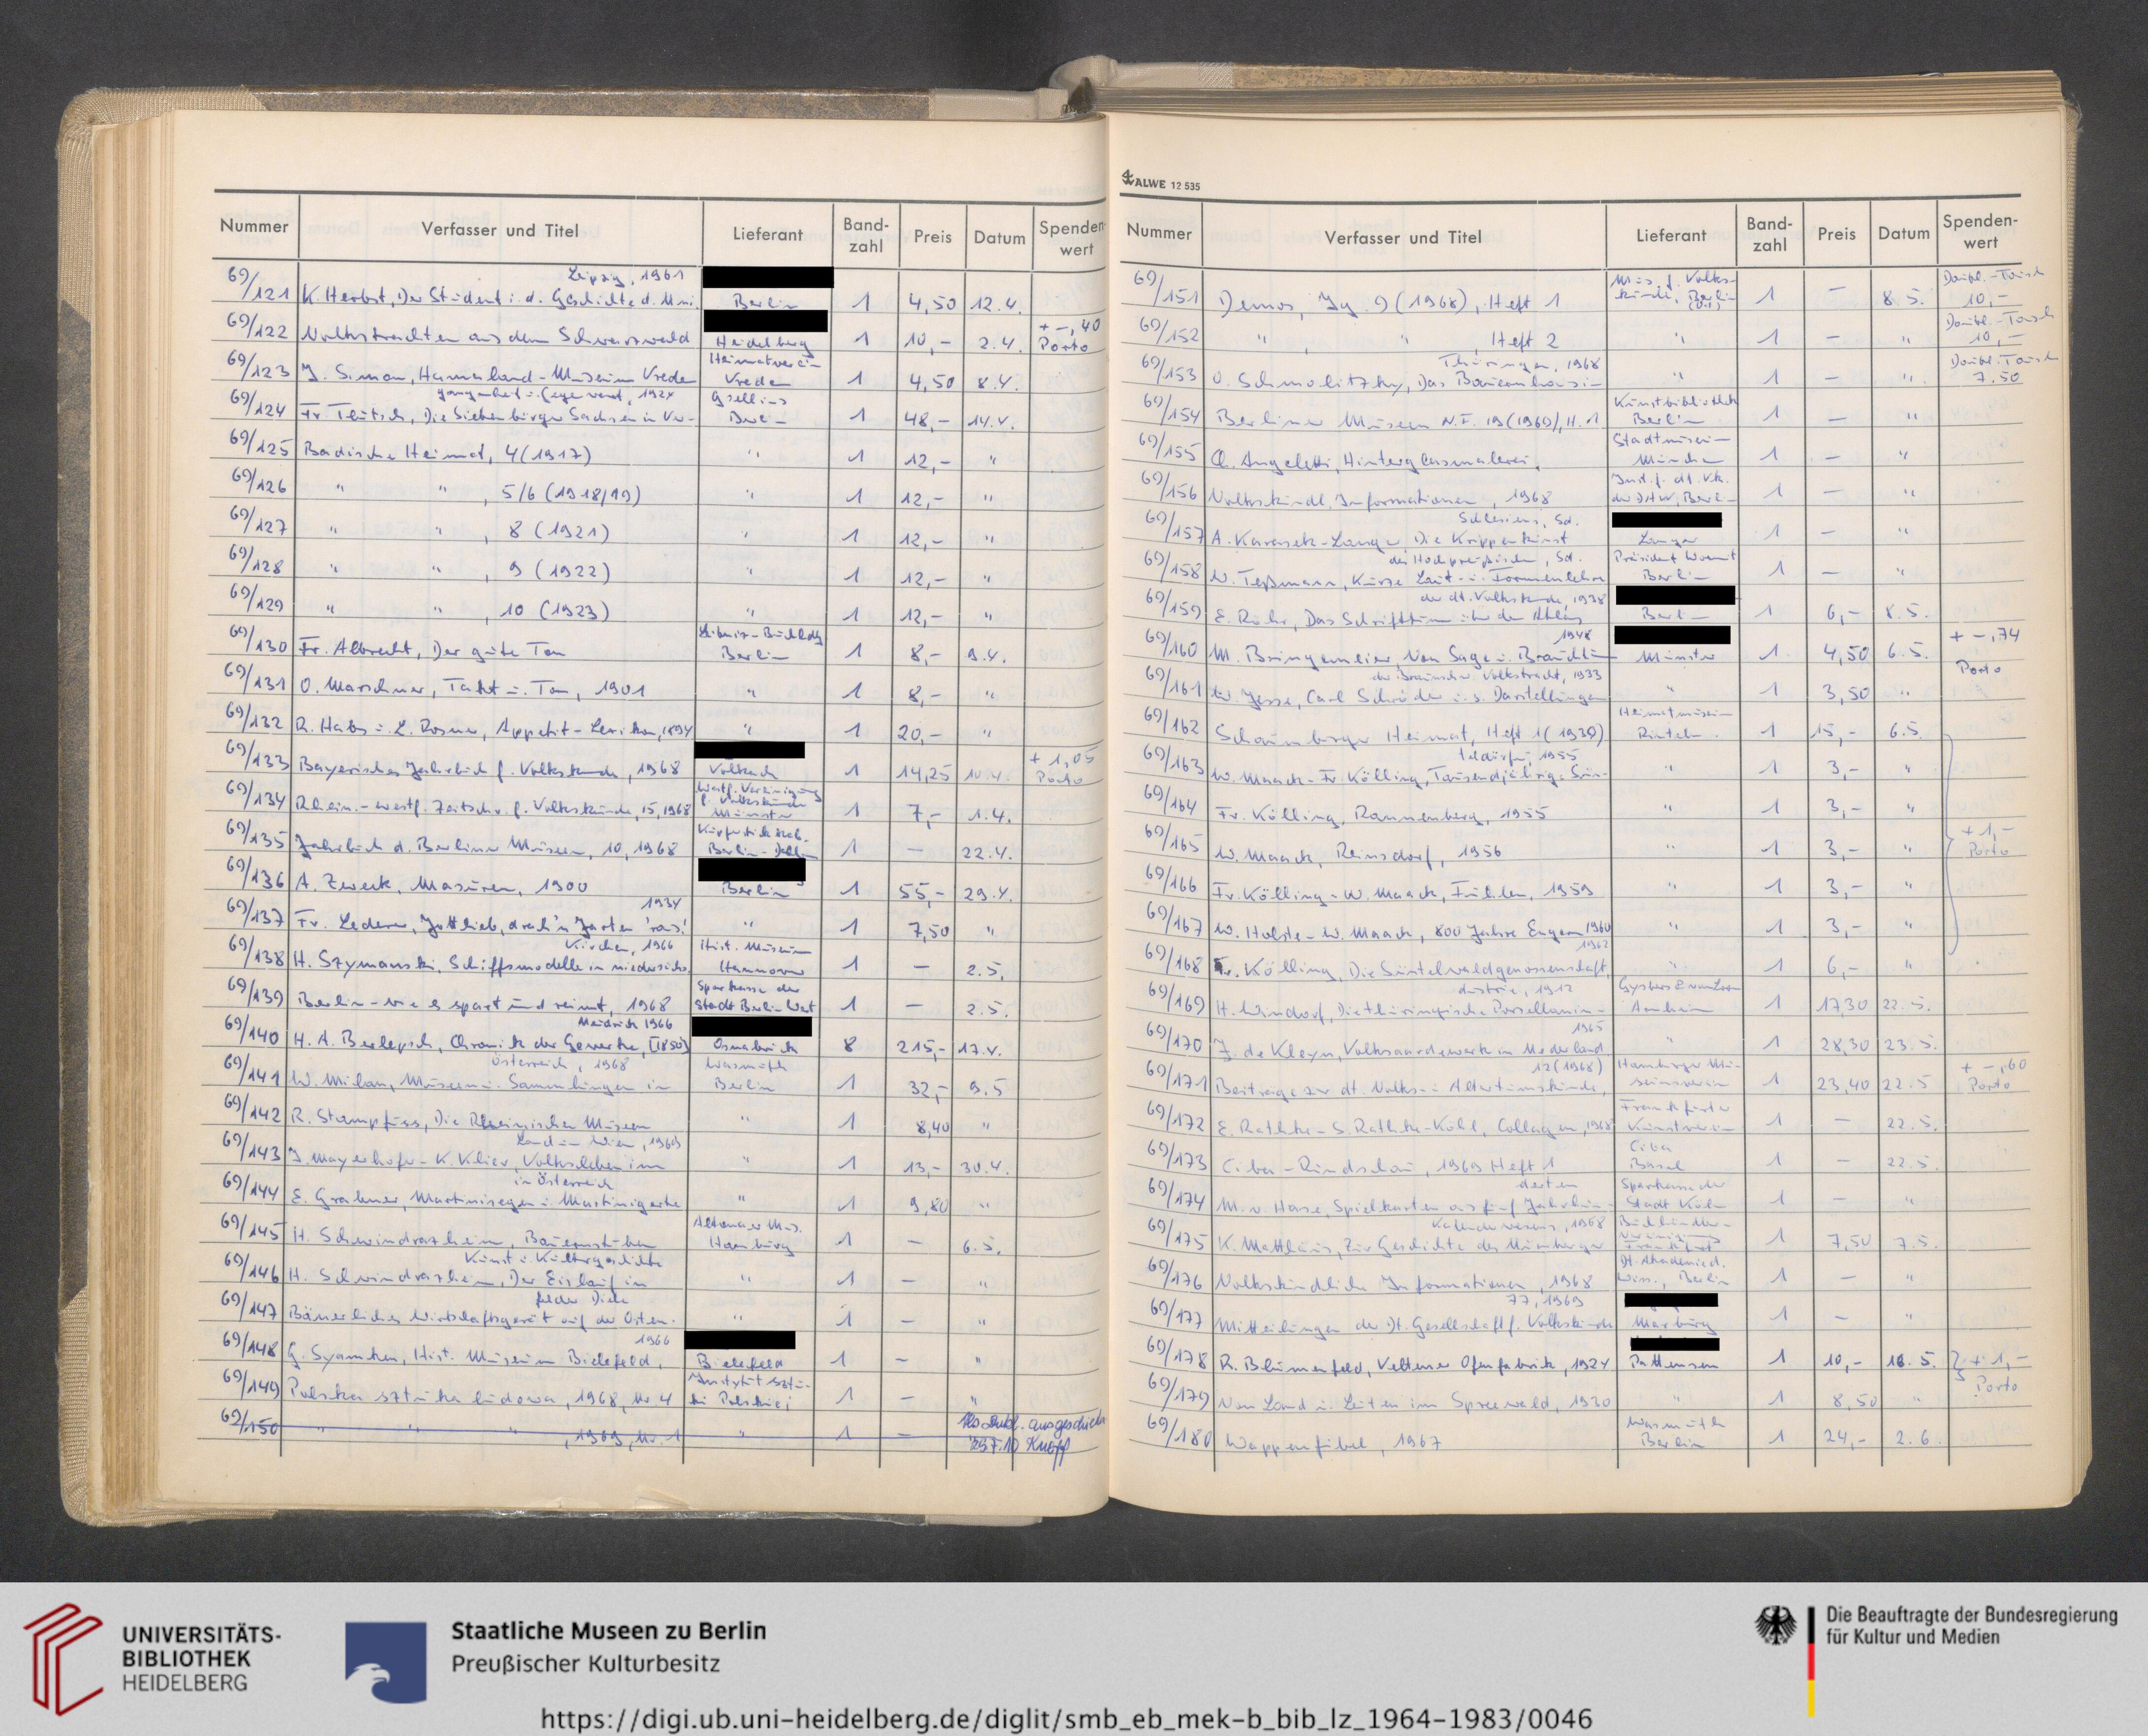 Nummer Verfasser und Titel Lieferant Band-zahl Preis Datum Spenden-wert
Leipzig, 1961
69/121 K. Herbst, Der Student i. d. Geschichte d. Uni. Berlin 1 4,50 12.4.
69/122 Volkstrachten aus dem Schwarzwald Heidelberg 1 10,- 2.4. + -,40 Porto
69/123 J. Simon, Hamaland-Museum Vreden Heimatverein Vreden 1 4,50 8.4.
gangenheit u. Gegenwart, 1924
69/124 Fr. Teutsch, Die Siebenbürger Sachsen in Ver- Gsellius Berlin 1 48,- 14.4.
69/125 Badische Heimat, 4 (1917) " 1 12,- "
69/126 " " , 5/6 (1918/19) " 1 12,- "
69/127 " " , 8 (1921) " 1 12,- "
69/128 " " , 9 (1922) " 1 12,- "
69/129 " " , 10 (1923) " 1 12,- "
69/130 Fr. Albrecht, Der gute Ton Leibniz-Buchhdlg Berlin 1 8,- 9.4.
69/131 O. Marschner, Takt u. Ton, 1901 " 1 8,- "
69/132 R. Habs u. L. Rosner, Appetit-Lexikon, 1894 " 1 20,- "
69/133 Bayerisches Jahrbuch f. Volkskunde, 1968 Volkach 1 14,25 10.4. + 1,05 Porto
69/134 Rhein.-westf. Zeitschr. f. Volkskunde, 15, 1968 Westf. Vereinigung f. Volkskunde Münster 1 7,- 1.4.
69/135 Jahrbuch d. Berliner Museen, 10, 1968 Berlin-Dahlem 1 — 22.4.
69/136 A. Zweck, Masuren, 1900 Berlin 1 55,- 29.4.
1934
69/137 Fr. Lederer, Jottlieb, drach'n Jarten 'raus! " 1 7,50 "
Kirchen, 1966
69/138 H. Szymanski, Schiffsmodelle in niedersächs. Hist. Museum Hannover 1 — 2.5.
69/139 Berlin - wie es spart und reimt, 1968 Sparkasse der Stadt Berlin West 1 — 2.5.
1966
69/140 H. A. Berlepsch, Chronik der Gewerke, [1850] Osnabrück 8 215,- 17.4.
Österreich, 1968
69/141 W. Milan, Museen u. Sammlungen in Wasmuth Berlin 1 32,- 9.5
69/142 R. Stampfuss, Die Rheinischen Museen " 1 8,40 "
Land um Wien, 1969
69/143 J. Mayerhofer - K. Klier, Volksleben im " 1 13,- 30.4.
in Österreich
69/144 E. Grabner, Martinisegen u. Martinigerte " 1 9,80 "
69/145 H. Schwindrazheim, Bauernstuben Altonaer Mus. Hamburg 1 — 6.5.
Kunst u. Kulturgeschichte
69/146 H. Schwindrazheim, Der Eislauf in " 1 — "
felder Diele
69/147 Bäuerliches Wirtschaftsgerät auf der Osten- " 1 — "
1966
69/148 G. Syamken, Hist. Museum Bielefeld, Bielefeld 1 — "
69/149 Polska sztuka ludowa, 1968, Nr 4 Instytut Sztuki Polskiej 1 — "
69/150 " " " , 1969, Nr. 1 " 1 — Als Dubl. ausgeschieden
ALWE 12 535
Nummer Verfasser und Titel Lieferant Band-zahl Preis Datum Spenden-wert
69/151 Demos, Jg. 9 (1968), Heft 1 Mus. f. Volkskunde, Berlin (Ost) 1 — 8.5. Doubl.-Tausch 10,-
69/152 " , " , Heft 2 " 1 — " Doubl.-Tausch 10,-
Thüringen, 1968
69/153 O. Schmolitzky, Das Bauernhaus in " 1 — " Doubl.-Tausch 7.50
69/154 Berliner Museen N.F. 19 (1969), H. 1 Kunstbibliothek Berlin 1 — "
69/155 Ch. Angeletti, Hinterglasmalerei, Stadtmuseum München 1 — "
69/156 Volkskundl. Informationen, 1968 Inst. f. dt. Vk. der DAW, Berlin 1 — "
Schlesiens, Sd.
69/157 A. Karasek-Langer, Die Krippenkunst Langer 1 — "
des Hochpreußischen, Sd.
69/158 W. Teßmann, Kurze Laut- u. Formenlehre Präsident Berlin 1 — "
der dt. Volkskunde, 1938
69/159 E. Rohr, Das Schrifttum über den Atlas Berlin 1 6,- 8.5.
1948
69/160 M. Bringemeier, Von Sage u. Brauchtum Münster 1 4,50 6.5. + -,74 Porto
der Braunschw. Volkstracht, 1933
69/161 W. Jesse, Carl Schröder u. s. Darstellungen " 1 3,50 "
69/162 Schaumburger Heimat, Heft 1 (1939) Heimatmuseum Rinteln 1 15,- 6.5.
teldörfer, 1955
69/163 W. Maack - Fr. Kölling, Tausendjährige Sün- " 1 3,- "
69/164 Fr. Kölling, Rannenberg, 1955 " 1 3,- "
69/165 W. Maack, Reinsdorf, 1956 " 1 3,- " + 1,- Porto
69/166 Fr. Kölling - W. Maack, Fuhlen, 1959 " 1 3,- "
69/167 W. Holste - W. Maack, 800 Jahre Engern 1960 " 1 3,- "
1962
69/168 Fr. Kölling, Die Süntelwaldgenossenschaft, " 1 6,- "
dustrie, 1912
69/169 H. Windorf, Die thüringische Porzellanin- Gysbers & van Loon Arnheim 1 17,30 22.5.
1965
69/170 J. de Kleyn, Volksaardewerk in Nederland " 1 28,30 23.5.
12 (1968)
69/171 Beiträge zur dt. Volks- u. Altertumskunde, Hamburger Museumsverein 1 23,40 22.5 + -,60 Porto
69/172 E. Rathke - S. Rathke-Köhl, Collagen, 1968 Frankfurter Kunstverein 1 — 22.5.
69/173 Ciba-Rundschau, 1969 Heft 1 Ciba Basel 1 — 22.5.
derten
69/174 M. v. Hase, Spielkarten aus fünf Jahrhun- Sparkasse der Stadt Köln 1 — "
Kalenderwesens, 1968
69/175 K. Matthäus, Zur Geschichte des Nürnberger Buchhändler-Vereinigung Frankfurt 1 7,50 7.5.
69/176 Volkskundliche Informationen, 1968 Dt. Akademie d. Wiss., Berlin 1 — "
77, 1969
69/177 Mitteilungen der Dt. Gesellschaft f. Volkskunde Marburg 1 — "
69/178 R. Blumenfeld, Veltener Ofenfabrik, 1924 Pattensen 1 10,- 16.5. + 1,- Porto
69/179 Von Land u. Leuten im Spreewald, 1920 " 1 8,50 "
69/180 Wappenfibel, 1967 Wasmuth Berlin 1 24,- 2.6.
UNIVERSITÄTS-
BIBLIOTHEK
HEIDELBERG
Staatliche Museen zu Berlin
Preußischer Kulturbesitz
Die Beauftragte der Bundesregierung
für Kultur und Medien
https://digi.ub.uni-heidelberg.de/diglit/smb_eb_mek-b_bib_lz_1964-1983/0046